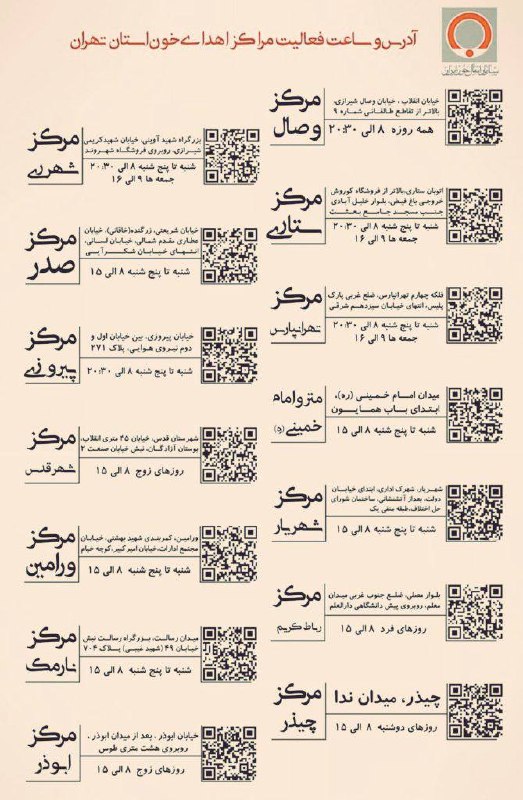 آدرس و ساعت فعالیت مراکز اهدای خون استان تهران
سازمان انتقال خون ایران
مرکز
وصال
خیابان انقلاب ، خیابان وصال شیرازی،
بالاتر از تقاطع طالقانی شماره ۹
همه روزه ۸ الی ۲۰:۳۰
مرکز
ستاری
اتوبان ستاری،بالاتر از فروشگاه کوروش
خروجی باغ فیض، بلوار خلیل آبادی
جنب مسجد جامع بعثت
شنبه تا پنج شنبه ۸ الی ۲۰:۳۰
جمعه ها ۹ الی ۱۶
مرکز
تهرانپارس
فلکه چهارم تهرانپارس، ضلع غربی پارک
پلیس، انتهای خیابان سیزدهم شرقی
شنبه تا پنج شنبه ۸ الی ۲۰:۳۰
جمعه ها ۹ الی ۱۶
مترو امام
خمینی (ره)
میدان امام خمینی (ره)،
ابتدای باب همایون
شنبه تا پنج شنبه ۸ الی ۱۵
مرکز
شهریار
شهریار، شهرک اداری، ابتدای خیابان
دولت، بعداز آتشنشانی، ساختمان شورای
حل اختلاف،طبقه منفی یک
شنبه تا پنج شنبه ۸ الی ۱۵
مرکز
رباط کریم
بلوار مصلی، ضلع جنوب غربی میدان
معلم، روبروی پیش دانشگاهی دارالعلم
روزهای فرد ۸ الی ۱۵
مرکز
چیذر
چیذر، میدان ندا
روزهای دوشنبه ۸ الی ۱۵
مرکز
شهرری
بزرگراه شهید آوینی، خیابان شهیدکریمی
شیرازی، روبروی فروشگاه شهروند
شنبه تا پنج شنبه ۸ الی ۲۰:۳۰
جمعه ها ۹ الی ۱۶
مرکز
صدر
خیابان شریعتی، زرگنده(خاقانی)، خیابان
عطاری مقدم شمالی، خیابان لسانی،
انتهای خیابان شکرآبی
شنبه تا پنج شنبه ۸ الی ۱۵
مرکز
پیروزی
خیابان پیروزی، بین خیابان اول و
دوم نیروی هوایی، پلاک ۲۷۱
شنبه تا پنج شنبه ۸ الی ۲۰:۳۰
مرکز
شهر قدس
شهرستان قدس، خیابان ۴۵ متری انقلاب،
بوستان آزادگان، نبش خیابان صنعت ۲
روزهای زوج ۸ الی ۱۵
مرکز
ورامین
ورامین، کمربندی شهید بهشتی، خیابان
مجتمع ادارات،خیابان امیر کبیر، کوچه خیام
شنبه تا پنج شنبه ۸ الی ۱۵
مرکز
نارمک
میدان رسالت، بزرگراه رسالت نبش
خیابان ۴۹ (شهید غیبی) پلاک ۷۰۴
شنبه تا پنج شنبه ۸ الی ۱۵
مرکز
ابوذر
خیابان ابوذر ، بعد از میدان ابوذر ،
روبروی هشت متری طوس
روزهای زوج ۸ الی ۱۵